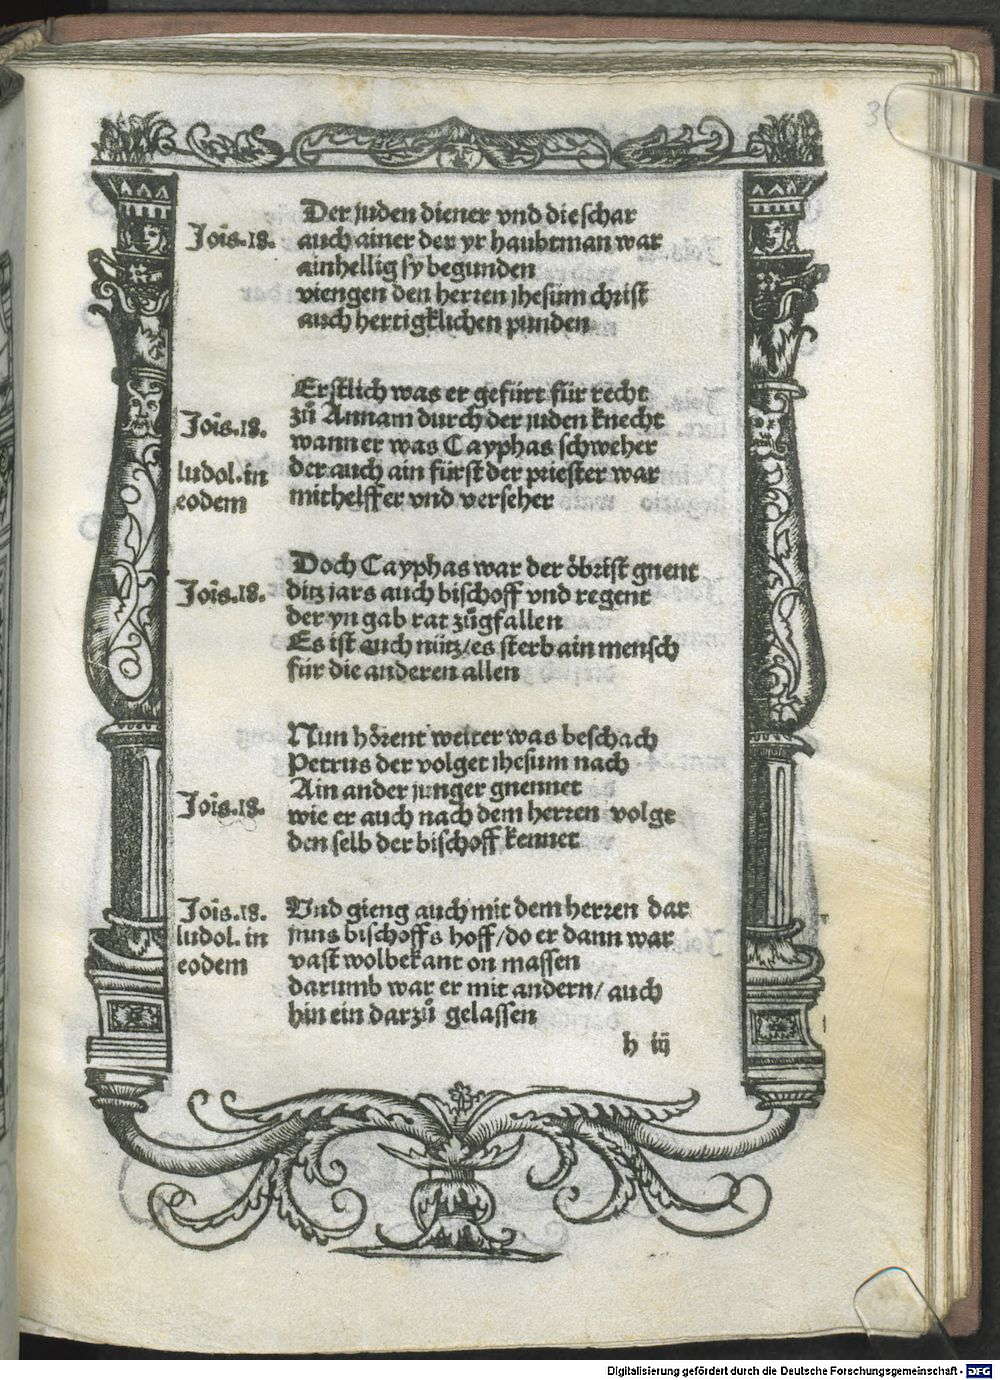 Der juden diener vnd die schar
Jois.18. auch ainer der yr haubtman war
ainhellig sy begunden
viengen den herren jhesum christ
auch hertigklichen punden
Erstlich was er gefürt für recht
Jois.18. zů Annam durch der juden knecht
wann er was Cayphas schweher
ludol. in der auch ain fürst der priester war
eodem mithelffer vnd verseher
Doch Cayphas war der öbrist gnent
Jois.18. ditz jars auch bischoff vnd regent
der yn gab rat zůgfallen
Es ist auch nütz/es sterb ain mensch
für die anderen allen
Nun hörent weiter was beschach
Petrus der volget jhesum nach
Jois.18. Ain ander junger gnennet
wie er auch nach dem herren volgt
den selb der bischoff kennet
Jois.18. Vnd gieng auch mit dem herren dar
ludol. in jnns bischoffs hoff/do er dann war
eodem vast wolbekant on massen
darumb war er mit andern/auch
hin ein darzů gelassen
h iij
Digitalisierung gefördert durch die Deutsche Forschungsgemeinschaft - DFG